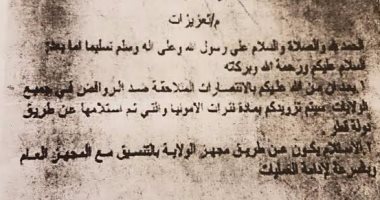 م/تعزيزات
الحمد لله والصلاة والسلام على رسول الله وعلى اله وسلم تسليما اما بعد:
السلام عليكم ورحمة الله وبركته
١.بعد ان من الله عليكم بالانتصارات المتلاحقة ضد الروافض في جميع
الولايات سيتم تزويدكم بمادة نترات الامونيا والتي تم استلامها عن طريق
دولة قطر
٢.الاستلام يكون عن طريق مجهز الولاية بالتنسيق مع المجهز العام
وبالسرعة لادامة العمليات